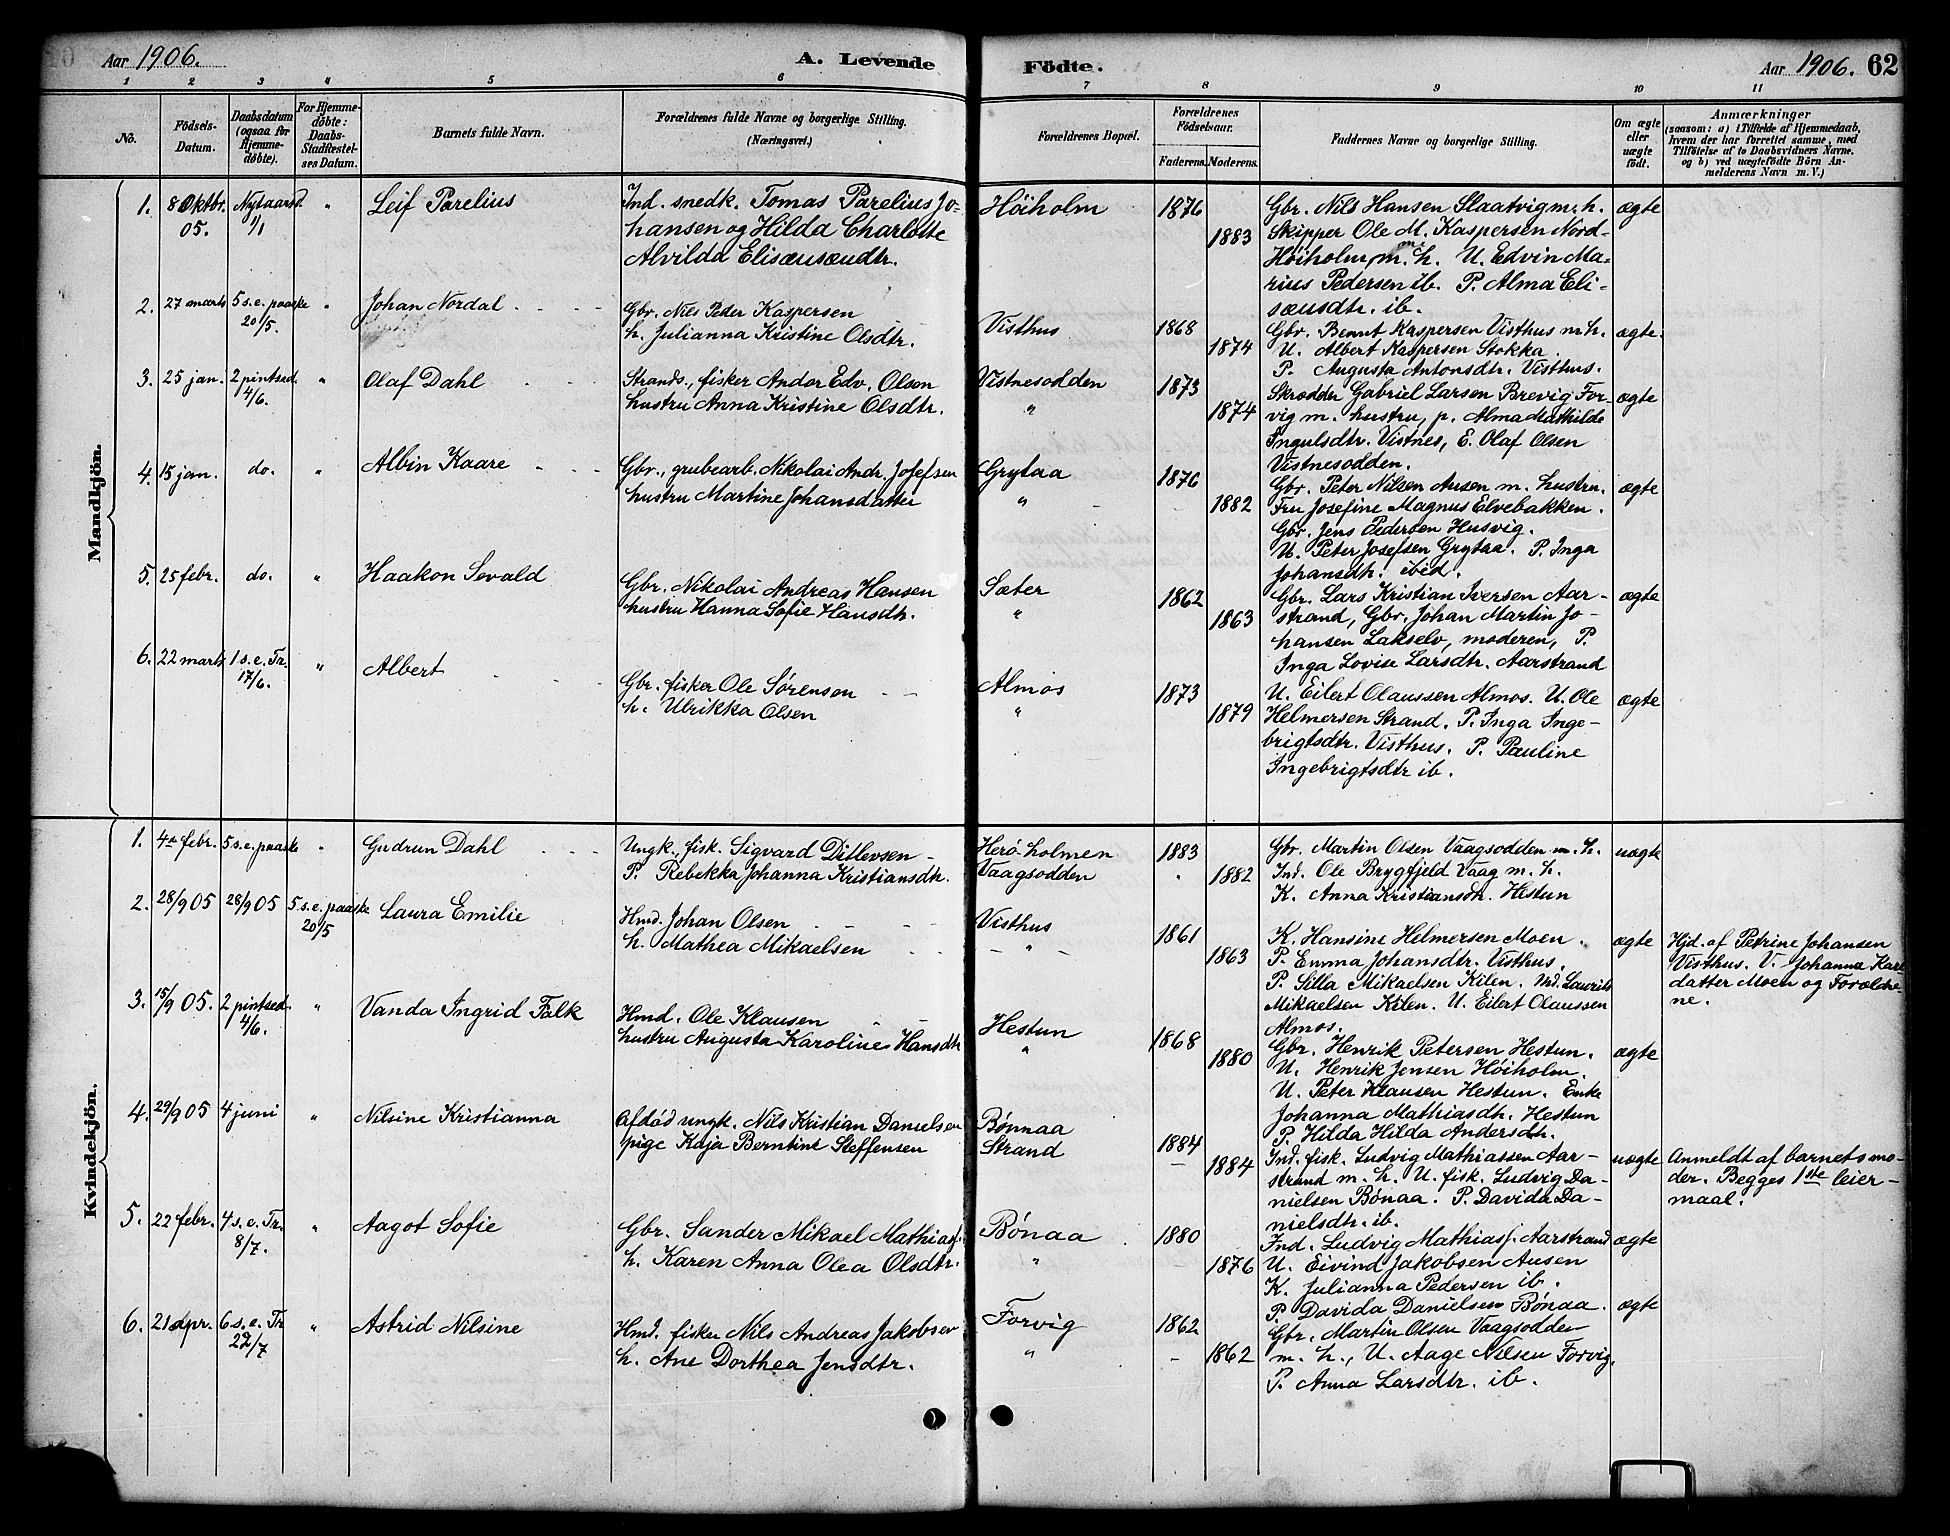 Aar 1906.
A. Levende
Födte.
Aar 1906. 62
1 2 3 4 5 6 7 8 9 10 11
No.
Födsels-Datum.
Daabsdatum (ogsaa for Hjemmedøbte).
For Hjemmedøbte: Daabs-Stadfæstelses Datum.
Barnets fulde Navn.
Forældrenes fulde Navne og borgerlige Stilling.
(Næringsvei.)
Forældrenes Bopæl.
Forældrenes Födselsaar.
Faderens. Moderens.
Faddernes Navne og borgerlige Stilling.
Om ægte eller uægte födt.
Anmærkninger
(saasom: a) i Tilfælde af Hjemmedaab, hvem der har forrettet samme, med Tilföielse af to Daabsvidners Navne. og b) ved uægtefödte Börn Anmelderens Navn m. V.)
Mandkjön.
1. 8 Oktbr. 05. Nytaarsd. 1/1 " Leif Parelius
Ind. snedk. Tomas Parelius Jo-
hansen og Hilda Charlotte
Alvilda Elisæusændtr.
Höiholm 1876 1883
Gbr. Nils Hansen Slaatvig m. h.
Skipper Ole M. Kaspersen Nord-
Höiholm, m. h. U. Edvin Ma-
rius Pedersen ib. P. Alma Eli-
sæusdtr. ib.
ægte
2. 27 marts 5 s. e. paaske 20/5. " Johan Nordal
Gbr. Nils Peder Kaspersen
h. Julianna Kristine Olsdtr.
Visthus 1868 1874
Gbr. Bernt Kaspersen Visthus m. h.
U. Albert Kaspersen Stokka.
P. Augusta Antonsdtr. Visthus.
ægte.
3. 25 jan. 2 pintsed. 4/6. " Olaf Dahl
Strands., fisker Andor Edv. Olsen
hustru Anna Kristine Olsdtr.
Vistnesodden " 1873 1874
Skrædder Gabriel Larsen Brevig For-
vig m. hustru, p. Alma Mathilde
Ingulsdtr. Vistnes, E. Olaf Olsen
Vistnesodden.
ægte
4. 15 jan. do. " Albin Kaare
Gbr., grubearb. Nikolai Andr. Josefsen
hustru Martine Johansdatter
Grytaa " 1876 1882
Gbr. Peter Nilsen Ausen m. hustru.
Fru Josefine Magnus Elvebakken.
Gbr. Jens Pedersen Husvig.
U. Peter Josefsen Grytaa. P. Inga
Johansdtr. ibid.
ægte
5. 25 febr. do. " Haakon Sevald
Gbr. Nikolai Andreas Hansen
hustru Hanna Sofie Hansdtr.
Sæter " 1862 1863
Gbr. Lars Kristian Iversen Aar-
strand, Gbr. Johan Martin Jo-
hansen Lakselv, moderen, P.
Inga Lovise Larsdtr. Aarstrand
ægte
6. 22 marts 1 s. e. Tr. 17/6. " Albert
Gbr. fisker Ole Sørensen
h. Ulrikka Olsen
Almos " 1873 1879
U. Eilert Olaussen Almos. U. Ole
Helmersen Strand. P. Inga Inge-
brigtsdtr. Visthus. P. Pauline
Ingebrigtsdtr ib.
ægte
Kvindekjön.
1. 4de febr. 5 s. e. paaske " Gudrun Dahl
Ungk. fisk. Sigvard Ditlevsen
P. Rebekka Johanna Kristiansdtr.
Herö-holmen
Vaagsodden 1883 1882
Gbr. Martin Olsen Vaagsodden m. h.
Ind. Ole Brygfjeld Vaag m. h.
K. Anna Kristiansdtr. Hestun
uægte
2. 28/9 05 28/9 05 5 s. e. paaske 20/5 Laura Emilie
Hmd. Johan Olsen
h. Mathea Mikaelsen
Visthus " 1861 1863
K. Hansine Helmersen Moen.
P. Emma Johansdtr. Visthus.
P. Silla Mikaelsen Kilen. Ind. Laurits
Mikaelsen Kilen. U. Eilert Olaussen
Almos.
ægte
Hjd. af Petrine Johansen
Visthus. V. Johanna Karl-
datter Moen og Foræld-
ne.
3. 15/9 05. 2 pintsed. 4/6. " Vanda Ingrid Falk
Hmd. Ole Klausen
hustru Augusta Karoline Hansdtr
Hestun " 1868 1880
Gbr. Henrik Petersen Hestun.
U. Henrik Jensen Höiholm.
U. Peter Klausen Hestun. Enke
Johanna Mathiasdtr. Hestun
P. Hilda Hilda Andersdtr.
ægte
4. 29/9 05 4 juni " Nilsine Kristianna
Afdød ungk. Nils Kristian Danielsen
pige Kaja Berntine Steffensen
Bønnaa
Strand 1884 1884
Ind. fisk. Ludvig Mathiassen Aar-
strand m. h. U. fisk. Ludvig Da-
nielsen Bønaa. P. Davida Da-
nielsdtr. ib.
uægte
Anmeldt af barnets mo-
der. Begges 1ste leier-
maal.
5. 22 febr. 4 s. e. Tr. 8/7. " Aagot Sofie
Gbr. Sander Mikael Mathiass.
h. Karen Anna Olea Olsdtr.
Bønaa " 1880 1876
Ind. Ludvig Mathiass. Aarstrand
U. Eivind Jakobsen Ausen
K. Julianna Pedersen ib.
P. Davida Danielsen Bønaa.
ægte
6. 21 apr. 6 s. e. Tr 22/7 " Astrid Nilsine
Hmd. fisker Nils Andreas Jakobsen
h. Ane Dorthea Jensdtr.
Forvig " 1862 1862
Gbr. Martin Olsen Vaagsodden
m. h., U. Aage Nilsen Forvig.
P. Anna Larsdtr. ib.
ægte